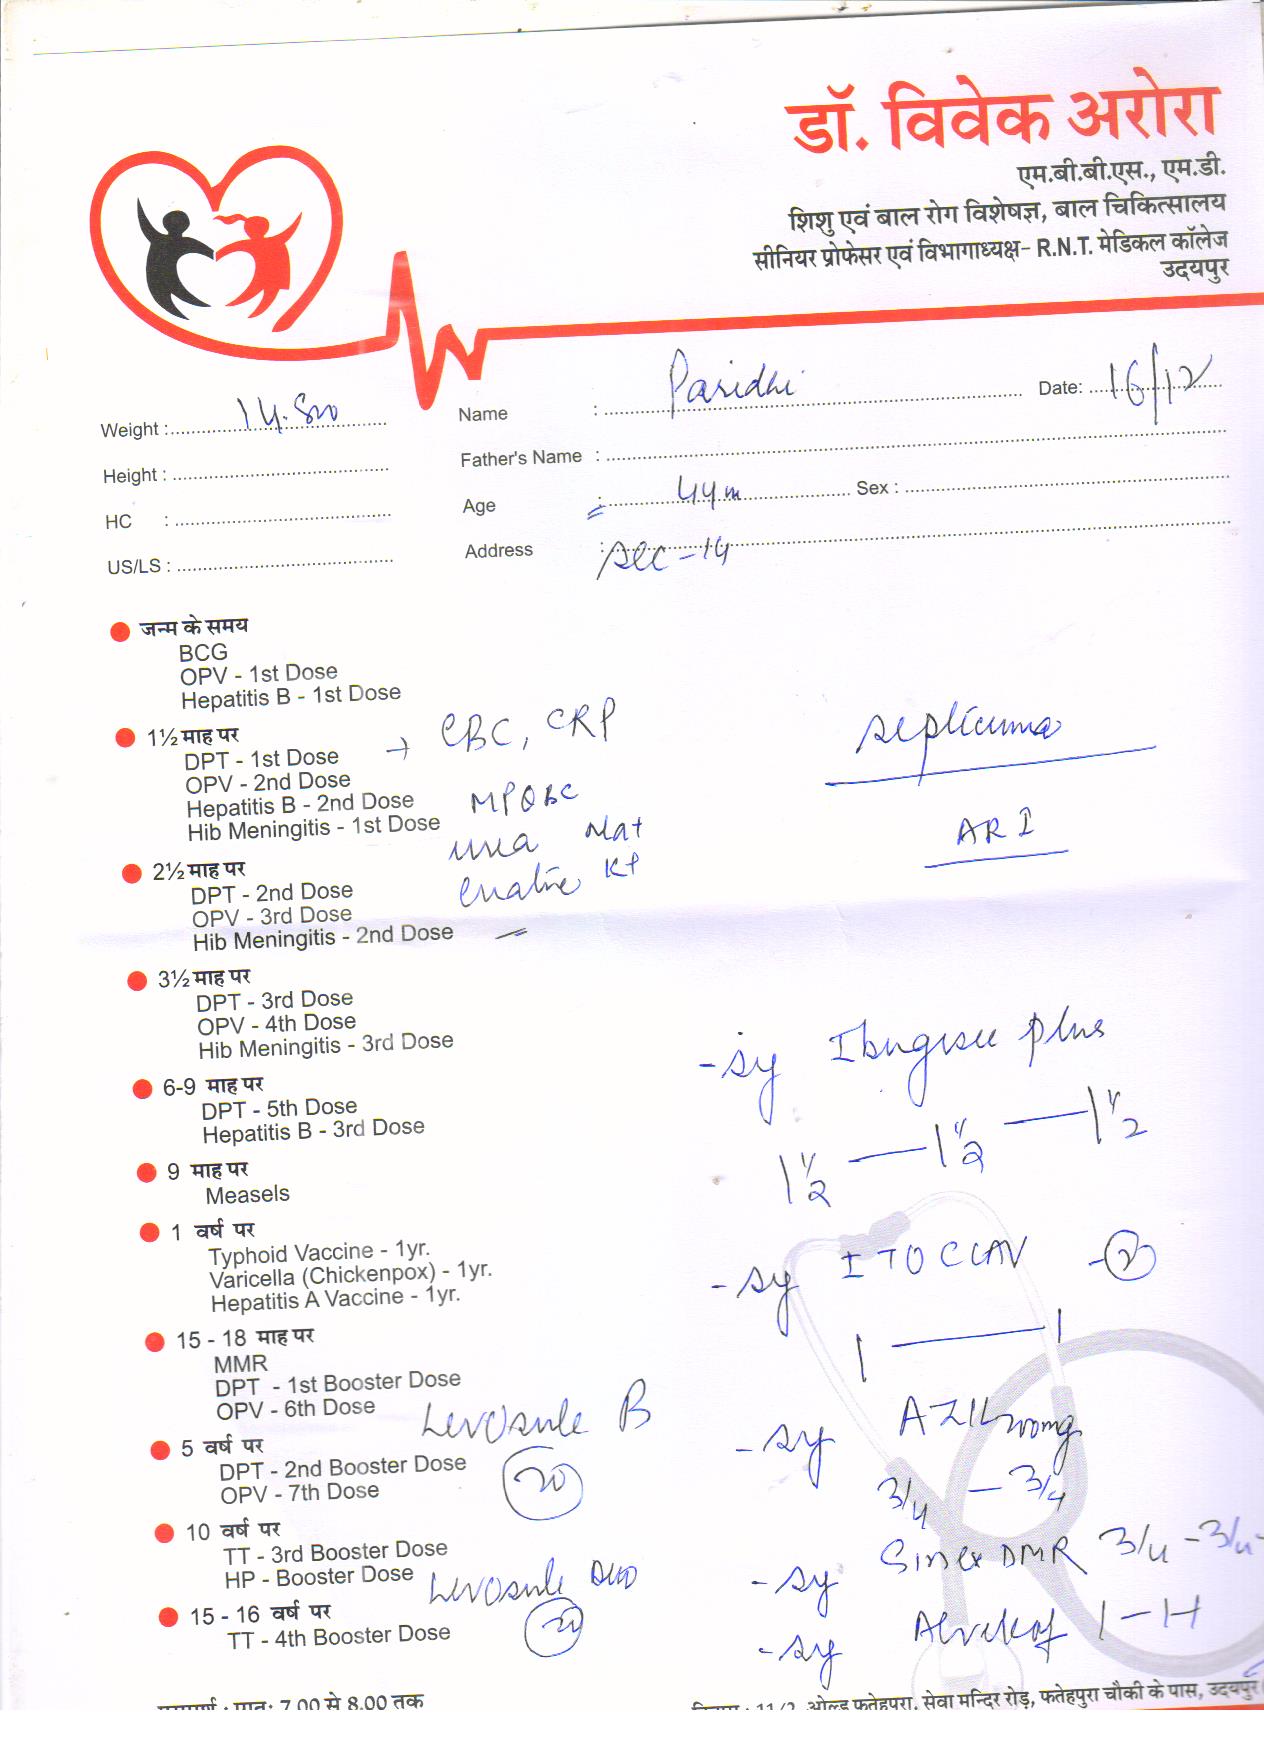 डॉ. विवेक अरोरा
एम.बी.बी.एस., एम.डी.
शिशु एवं बाल रोग विशेषज्ञ, बाल चिकित्सालय
सीनियर प्रोफेसर एवं विभागाध्यक्ष- R.N.T. मेडिकल कॉलेज
उदयपुर
Weight :
Name : Paridhi
Date: 16/12
Height :
Father's Name :
HC :
Age :
Sex :
US/LS :
Address : Sec-14
जन्म के समय
BCG
OPV - 1st Dose
Hepatitis B - 1st Dose
1½ माह पर
DPT - 1st Dose
OPV - 2nd Dose
Hepatitis B - 2nd Dose
Hib Meningitis - 1st Dose
→ CBC, CRP
MPQBC
Na+
K+
septicemia
ARI
2½ माह पर
DPT - 2nd Dose
OPV - 3rd Dose
Hib Meningitis - 2nd Dose
3½ माह पर
DPT - 3rd Dose
OPV - 4th Dose
Hib Meningitis - 3rd Dose
6-9 माह पर
DPT - 5th Dose
Hepatitis B - 3rd Dose
9 माह पर
Measels
1 वर्ष पर
Typhoid Vaccine - 1yr.
Varicella (Chickenpox) - 1yr.
Hepatitis A Vaccine - 1yr.
15 - 18 माह पर
MMR
DPT - 1st Booster Dose
OPV - 6th Dose
5 वर्ष पर
DPT - 2nd Booster Dose
OPV - 7th Dose
10 वर्ष पर
TT - 3rd Booster Dose
HP - Booster Dose
15 - 16 वर्ष पर
TT - 4th Booster Dose
- sy Ibugesic plus
1½ — 1½ — 1½
- sy ITOCLAV - 2
1 — 1
- sy
3/4 — 3/4
- sy DMR 3/4 - 3/4 -
- sy
Levosule B
Levosule
7.00 से 8.00 तक
11/2, ओल्ड फतेहपुरा, सेवा मन्दिर रोड़, फतेहपुरा चौकी के पास, उदयपुर